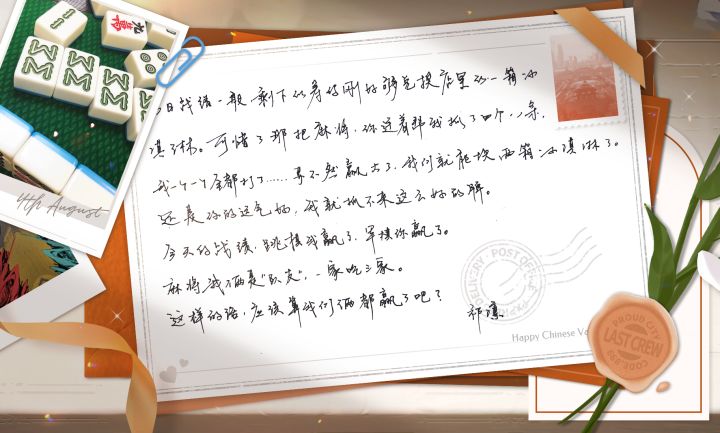 今日战绩一般，剩下的筹码刚好够兑换店里的一箱冰
淇淋。可惜了那把麻将，你送着牌我抓了四个八条，
我一个一个全都打了……要不然赢大了，我们就能换两箱冰淇淋了。
还是你的运气好，我就抓不来这么好的牌。
今天的战绩，跳棋我赢了，军棋你赢了。
麻将我俩是“队友”，一家吃三家。
这样的话，应该算我们俩都赢了吧？
祁煜
4th August
DELIVERY · POST OFFICE
Happy Chinese Va
PROUD CITY
LAST CREW
CODE: